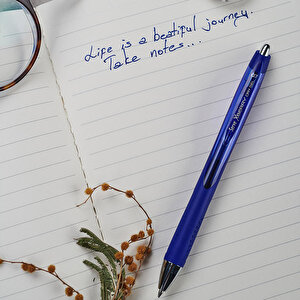 Life is a beatiful journey.
Take notes...